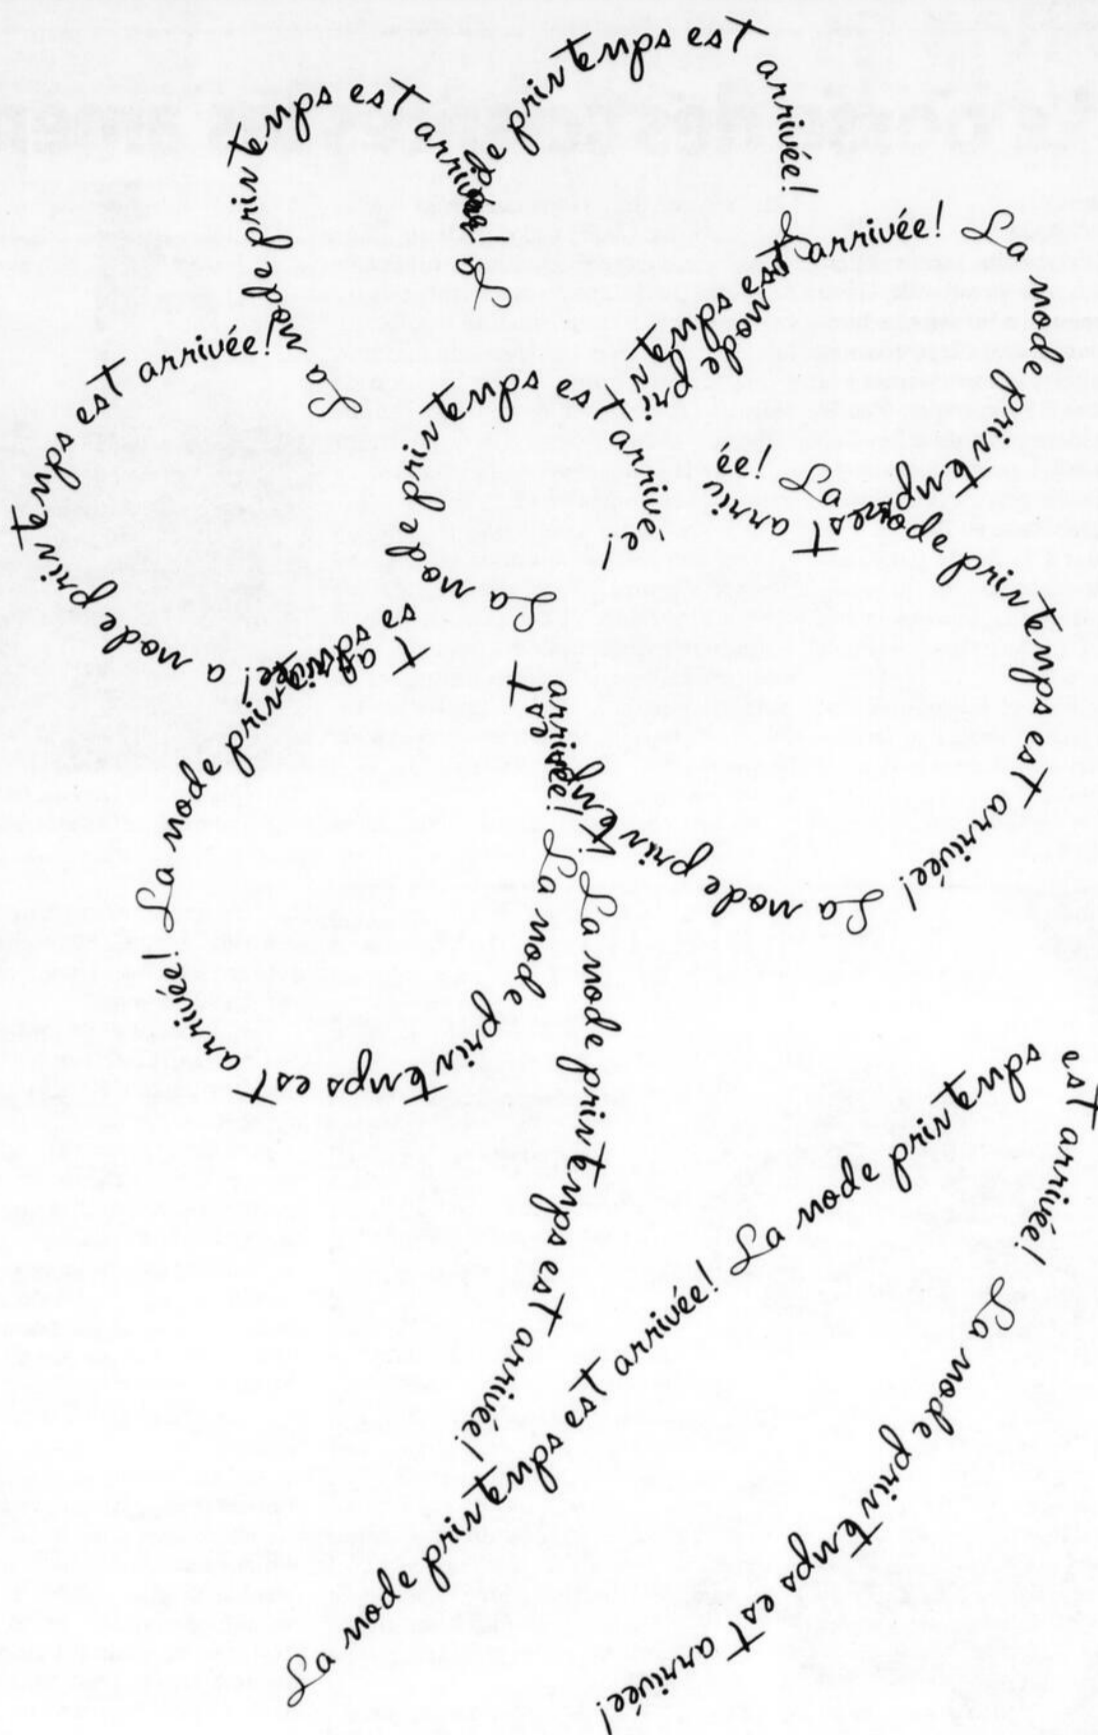 La mode printemps est arrivée!
La mode printemps est arrivée!
La mode printemps est arrivée!
La mode printemps est arrivée!
a mode printemps est arrivée!
La mode printemps est arrivée!
La mode printemps est arrivée!
La mode printemps est arrivée!
La mode printemps est arrivée!
La mode printemps est arrivée!
La mode printemps est arrivée!
La mode printemps est arrivée!
La mode printemps est arrivée!
La mode printemps est arrivée!
La mode printemps est arrivée!
La mode printemps est arrivée!